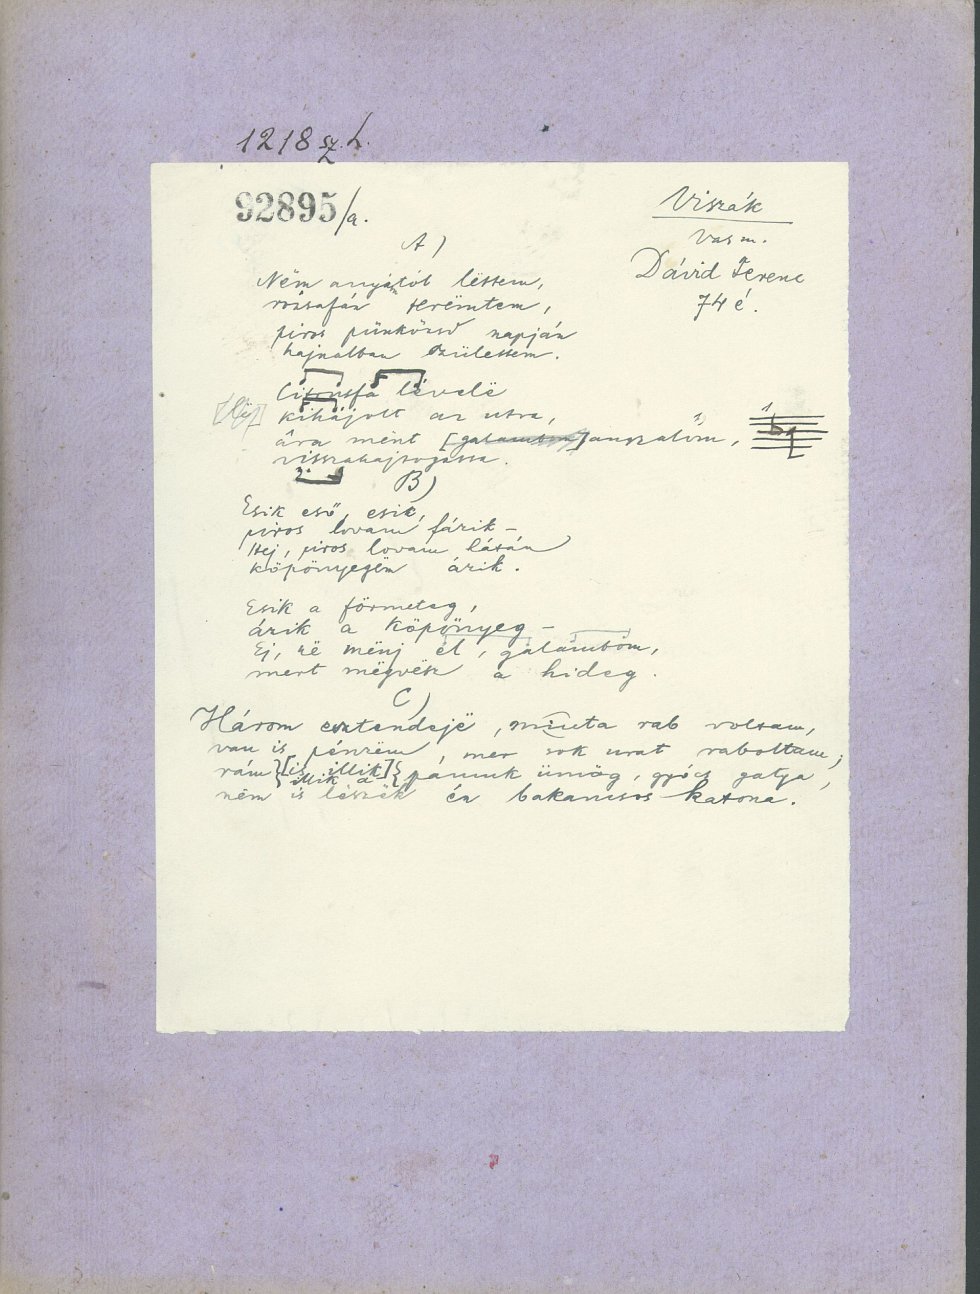 1218 sz h.
92895/a.
Viszák
Vas m.
Dávid Ferenc
74 é.
A)
Nëm anyától lëttem,
rózsafán termëttem,
piros pünkösd napján
hajnalban születtem.
Citrusfa lëvelë
kihajolt az utra,
ára mënt [galambom] angyalöm,
visszahajtogassa.
B)
Esik eső, esik,
piros lovam fázik –
Hej, piros lovam látán
köpönyegëm ázik.
Esik a förmeteg,
ázik a köpönyeg –
Ej, në mënj el, galamböm,
mert mëgvësz a hideg.
C)
Három esztendejë, miuta rab voltam,
van is pénzëm, mer sok urat raboltam;
rám }[is illik]{ pámuk ümög, gyócs gatya,
illik a
nëm is lëszëk én bakancsos katona.